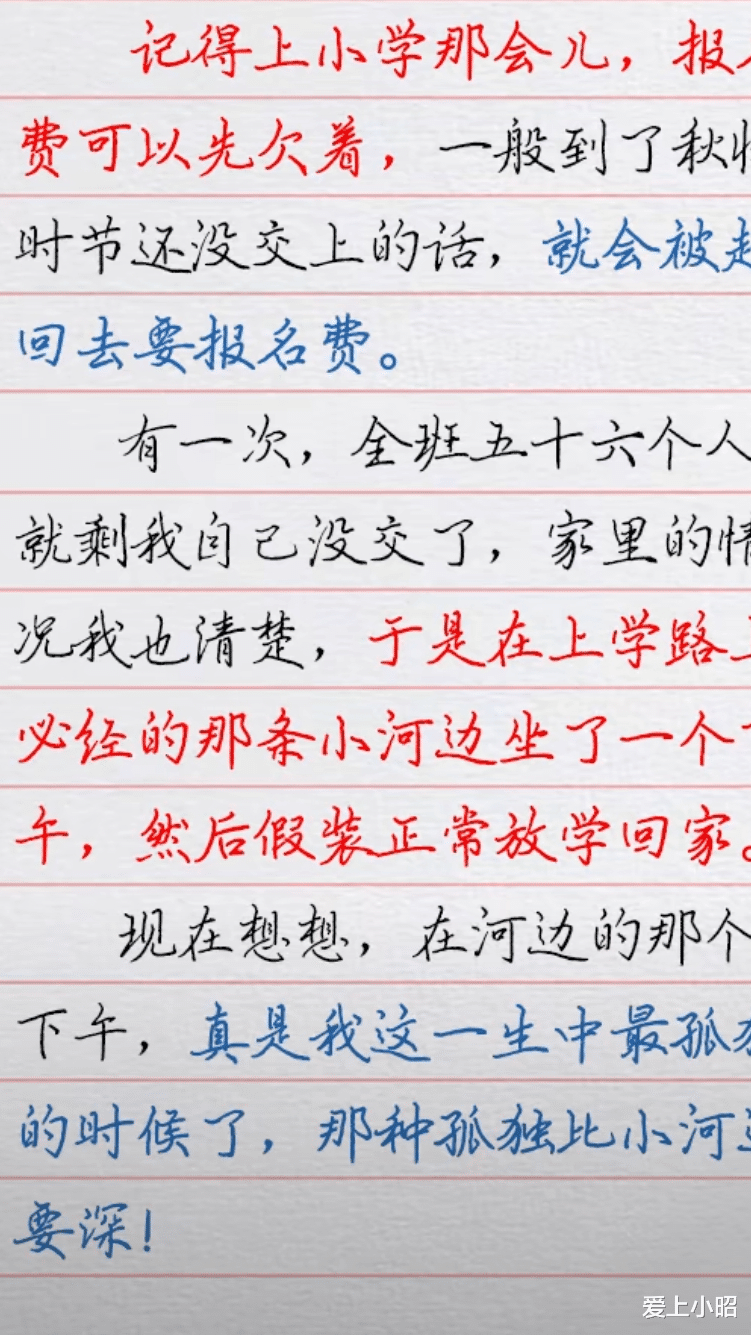 记得上小学那会儿，报
费可以先欠着，一般到了秋
时节还没交上的话，就会被赶
回去要报名费。
有一次，全班五十六个人
就剩我自己没交了，家里的情
况我也清楚，于是在上学路上
必经的那条小河边坐了一个
午，然后假装正常放学回家。
现在想想，在河边的那个
下午，真是我这一生中最孤独
的时候了，那种孤独比小河还
要深！
爱上小昭